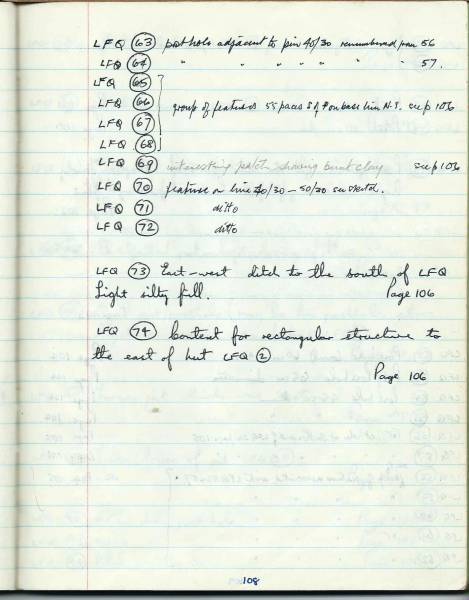 LFQ 63 posthole adjacent to pin 40/30 renumbered from 56
LFQ 64 " " " " " " " 57.
LFQ 65
LFQ 66 group of features 55 paces S of on base line N.S. see p 106
LFQ 67
LFQ 68
LFQ 69 interesting patch showing burnt clay see p 106
LFQ 70 feature on line 40/30 - 50/30 see sketch.
LFQ 71 ditto
LFQ 72 ditto
LFQ 73 East-west ditch to the south of LFQ
Light silty fill. Page 106
LFQ 74 Context for rectangular structure to
the east of hut LFQ 2
Page 106
108